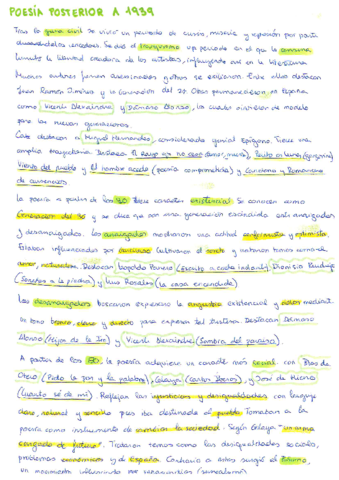 POESÍA POSTERIOR A 1939
Tras la guerra civil se vivió un periodo de crisis, miseria y opresión por parte
de los vencedores. Se dio el franquismo un periodo en el que la censura
limitó la libertad creadora de los artistas, influyendo así en la literatura
Muchos autores fueron asesinados y otros se exiliaron. Entre ellos destacan
Juan Ramón Jiménez y la Generación del 27. Otros permanecieron en España
como Vicente Aleixandre y Dámaso Alonso, los cuales sirvieron de modelo
para las nuevas generaciones.
Cabe destacar a Miguel Hernández, considerado genial epígono. Tiene una
amplia trayectoria. Destaca El Rayo que no cesa (amor, muerte), Perito en lunas (gongorina)
Viento del pueblo y El hombre acecha (poesía comprometida) y Cancionero y Romancero
de ausencias
La poesía a partir de los 40 tiene carácter existencial. Se conocen como
Generación del 36 y se dice que son una generación escindida entre arraigados
y desarraigados. Los arraigados mostraron una actitud conformista y optimista.
Estaban influenciados por Garcilaso cultivaron el soneto y usaban temas como
amor, naturaleza. Destacan Leopoldo Panero (Escrito a cada instante), Dionisio Ridruejo
(Sonetos a la piedra) y Luis Rosales (La casa encendida)
Los desarraigados buscaron expresar la angustia existencial y dolor mediante
un tono bronco, claro y directo para expresar del Destacan Dámaso
Alonso (Hijos de la Ira) y Vicente Aleixandre (Sombra del paraíso).
A partir de los 50, la poesía adquiere un carácter más social con Blas de
Otero (Pido la paz y la palabra), Celaya (Cantos Iberos), y José de Hierro
(Cuanto sé de mí). Reflejan las injusticias y desigualdades con lenguaje
claro, natural y sencillo pues iba destinada al pueblo. Tomaban a la
poesía como instrumento de cambiar la sociedad. Según Celaya "un arma
cargada de futuro". Trataron temas como las desigualdades sociales,
problemas económicos y de España. Contrario a estos surgió el Postismo,
un movimiento influenciado por vanguardias (surrealismo)